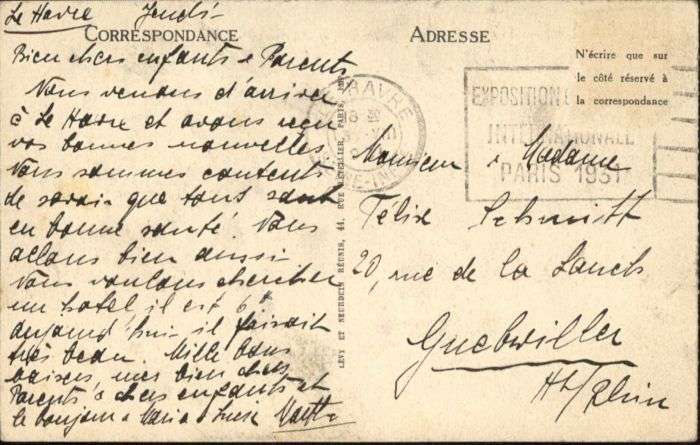 Le Havre Jeudi
CORRESPONDANCE
Bien chers enfants & Parents
Nous venons d'arriver
à Le Havre et avons reçu
vos bonnes nouvelles
Nous sommes contents
de savoir que tous sont
en bonne santé. Nous
allons bien aussi
Nous voulons chercher
un hotel il est 6h
aujourd'hui il faisait
très beau. Mille bons
baisers mes bien chers
Parents & chers enfants et
le bonjour à Maria &
LÉVY ET NEURDEIN RÉUNIS, 44, RUE LETELLIER, PARIS
ADRESSE
N'écrire que sur
le côté réservé à
la correspondance
HAVRE
EXPOSITION
INTERNATIONALE
PARIS 1931
Monsieur & Madame
Félix Schmitt
20, rue de la Lauch
Guebwiller
Ht/Rhin